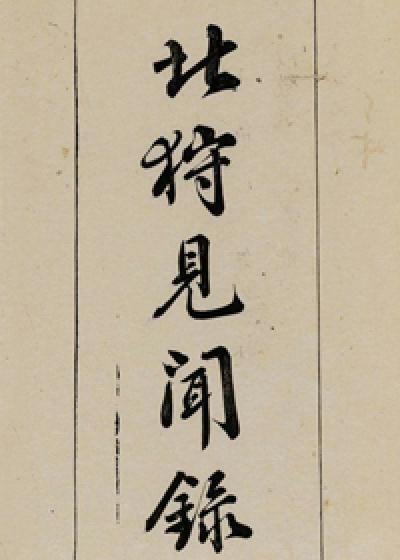 北狩見聞錄